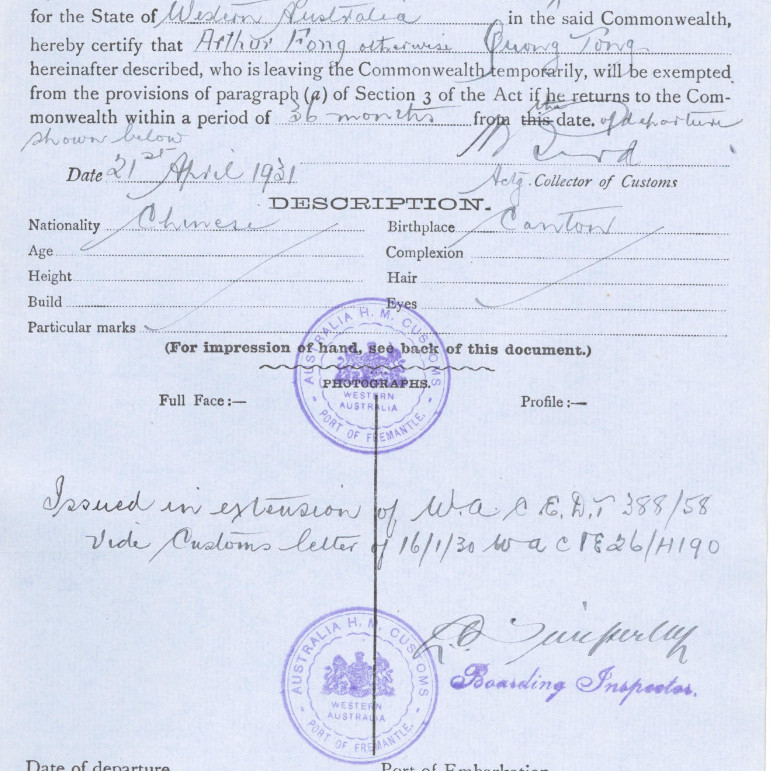 for the State of Western Australia in the said Commonwealth,
hereby certify that Arthur Fong otherwise Quong Tong
hereinafter described, who is leaving the Commonwealth temporarily, will be exempted
from the provisions of paragraph (a) of Section 3 of the Act if he returns to the Com-
monwealth within a period of 36 months from this the date. of departure
shown below
Date 21st April 1931
Actg. Collector of Customs
DESCRIPTION.
Nationality Chinese Birthplace Canton
Age Complexion
Height Hair
Build Eyes
Particular marks
(For impression of hand, see back of this document.)
AUSTRALIA H. M. CUSTOMS
PHOTOGRAPHS.
WESTERN
AUSTRALIA
PORT OF FREMANTLE.
Full Face:— Profile:—
Issued in extension of W.A C E.D.T 388/58
Vide Customs letter of 16/1/30 W A C T E26/H190
AUSTRALIA H. M. CUSTOMS
WESTERN
AUSTRALIA
PORT OF FREMANTLE.
Boarding Inspector.
Date of departure Port of Embarkation